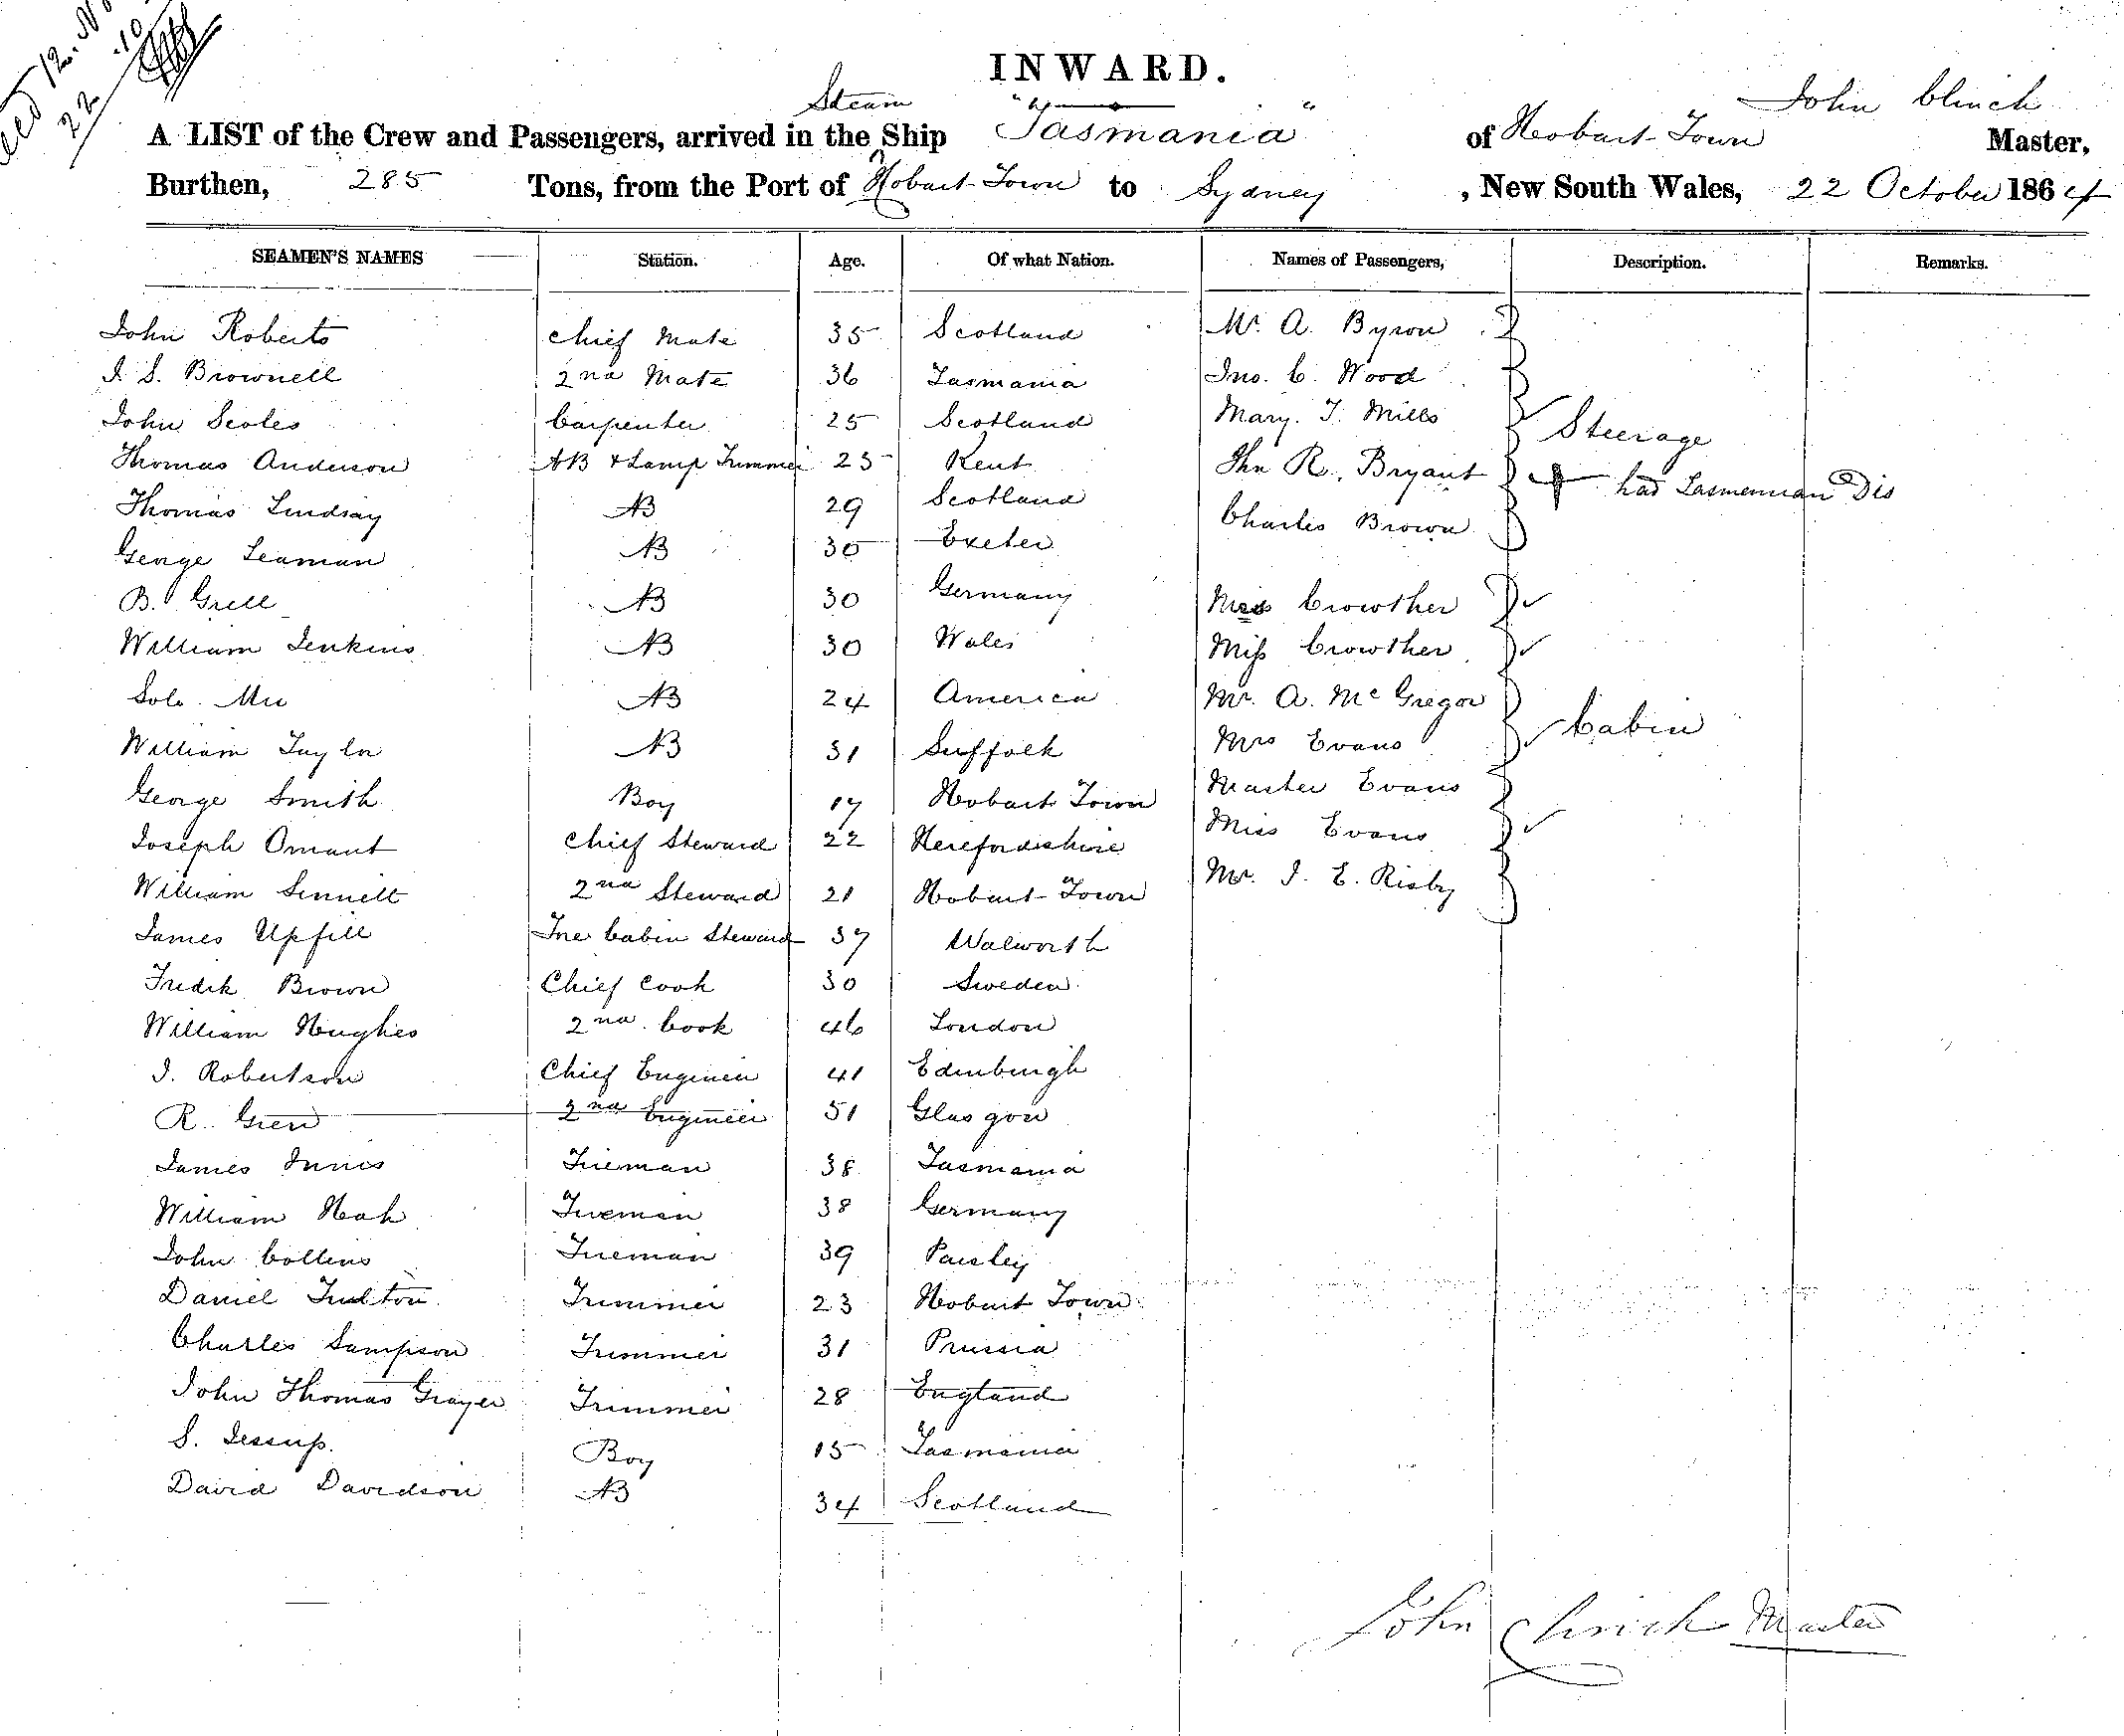 22
INWARD.
Steam
John Clinch
A LIST of the Crew and Passengers, arrived in the Ship "Tasmania" of Hobart Town Master,
Burthen, 285 Tons, from the Port of Hobart Town to Sydney, New South Wales, 22 October 1864
SEAMEN'S NAMES Station. Age. Of what Nation. Names of Passengers, Description. Remarks.
John Roberts Chief Mate 35 Scotland Mr. A. Byron
J. S. Brownell 2nd Mate 36 Tasmania Jno. C. Wood
John Scoles Carpenter 25 Scotland Mary. T. Mills Steerage
Thomas Anderson AB & Lamp Trimmer 25 Kent Jhn R. Bryant had Tasmanian Dis
Thomas Lindsay AB 29 Scotland Charles Brown
George Leaman AB 30 Exeter
B. Grell AB 30 Germany Mrs Crowther
William Jenkins AB 30 Wales Miss Crowther
Solo. AB 24 America Mr. A. McGregor Cabin
William Taylor AB 31 Suffolk Mrs Evans
George Smith Boy 17 Hobart Town Master Evans
Joseph Omant Chief Steward 22 Herefordshire Miss Evans
William Sennett 2nd Steward 21 Hobart Town Mr. J. E. Risby
James Upfill Fore Cabin Steward 37 Walworth
Fredk Brown Chief Cook 30 Sweden
William Hughes 2nd Cook 46 London
J. Robertson Chief Engineer 41 Edinburgh
R. 2nd Engineer 51 Glasgow
James Innis Fireman 38 Tasmania
William Hah Fireman 38 Germany
John Collins Fireman 39 Paisley
Daniel Fulton Trimmer 23 Hobart Town
Charles Sampson Trimmer 31 Prussia
John Thomas Grayer Trimmer 28 England
S. Jessup. Boy 15 Tasmania
David Davidson AB 34 Scotland
John Clinch Master